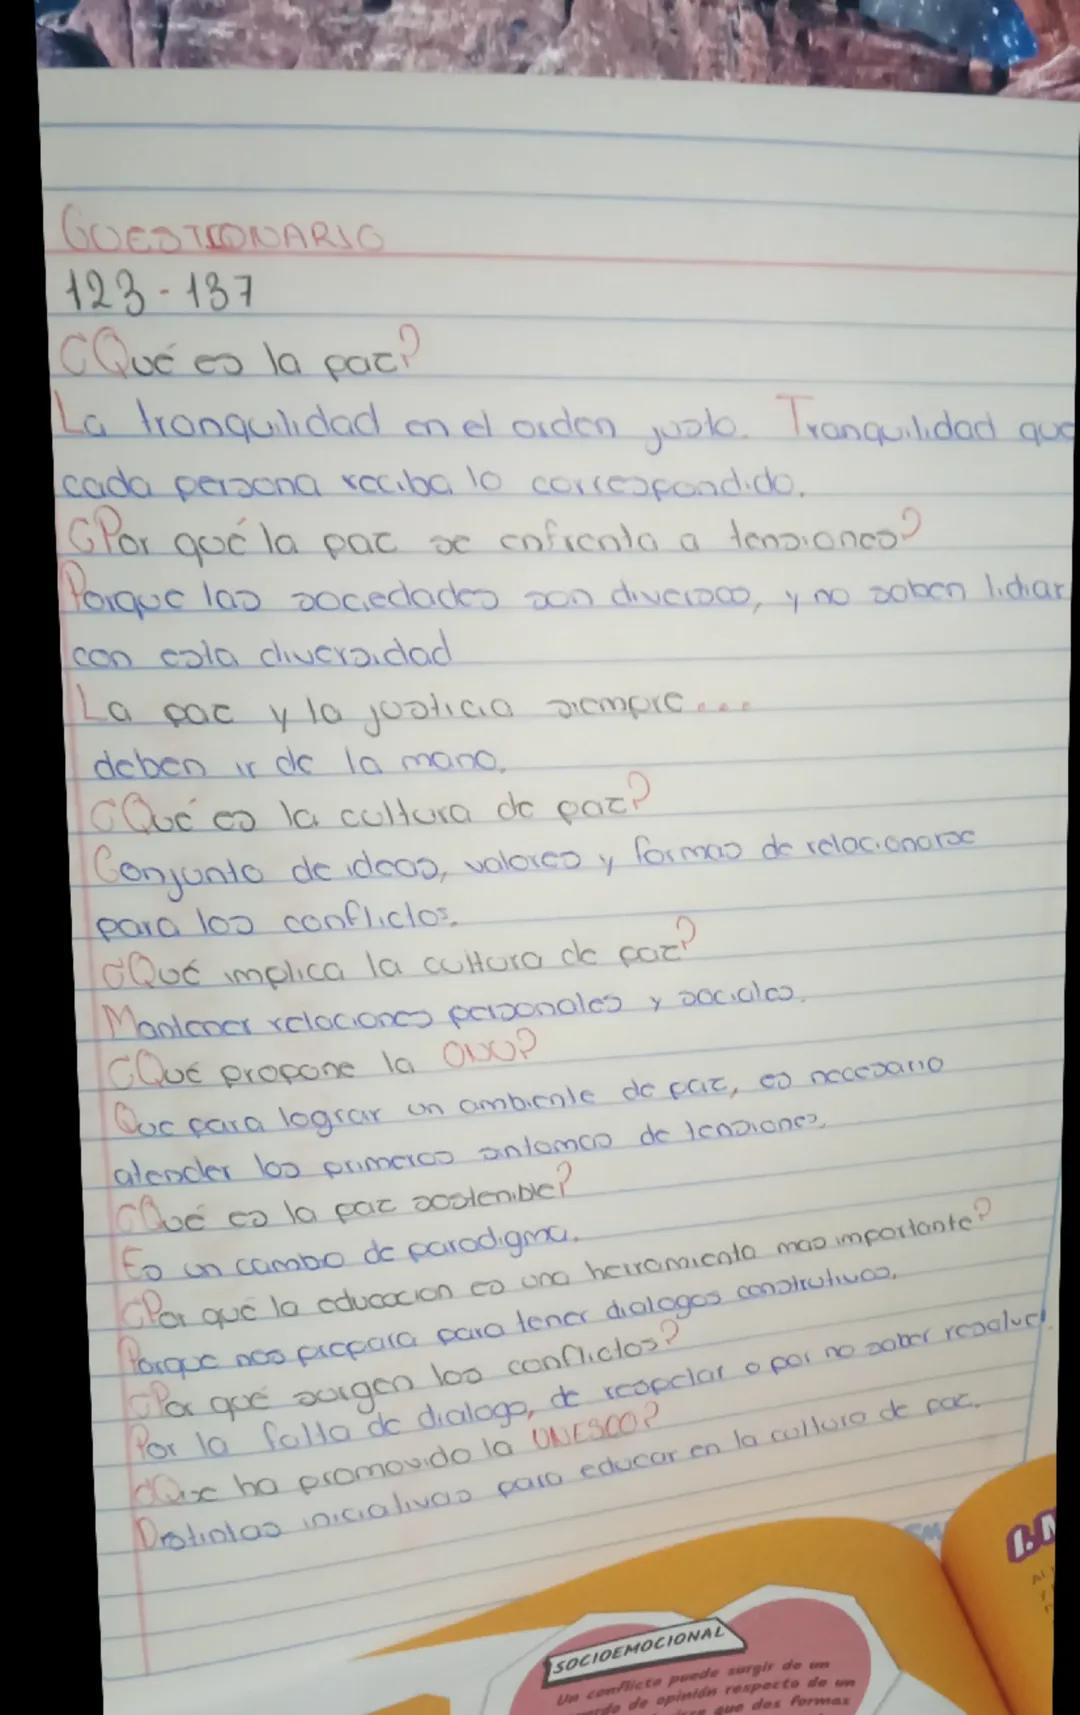 CUESTIONARIO
123-137
¿Qué es la paz?
La tranquilidad en el orden justo. Tranquilidad que
cada persona reciba lo correspondido.
¿Por qué la paz se enfrenta a tensiones?
Porque las sociedades son diversas, y no saben lidiar
con esta diversidad
La paz y la justicia siempre...
deben ir de la mano.
¿Qué es la cultura de paz?
Conjunto de ideas, valores y formas de relacionarse
para los conflictos.
¿Qué implica la cultura de paz?
Mantener relaciones personales y sociales.
¿Qué propone la ONU?
Que para lograr un ambiente de paz, es necesario
atender los primeros sintomas de tensiones.
¿Qué es la paz sostenible?
Es un cambio de paradigma.
¿Por qué la educacion es una herramienta mas importante?
Porque nos prepara para tener dialogos construtivos.
¿Por qué surgen los conflictos?
Por la falta de dialogo, de respetar o por no saber resolver
¿Que ha promovido la UNESCO?
Distintas iniciativas para educar en la cultura de paz.
SOCIOEMOCIONAL
Un conflicto puede surgir de un
de opinión respecto de un
que dos formas